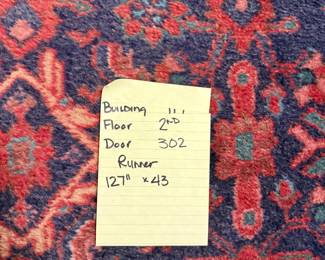 Building "1"
Floor 2ND
Door 302
Runner
127" x 43